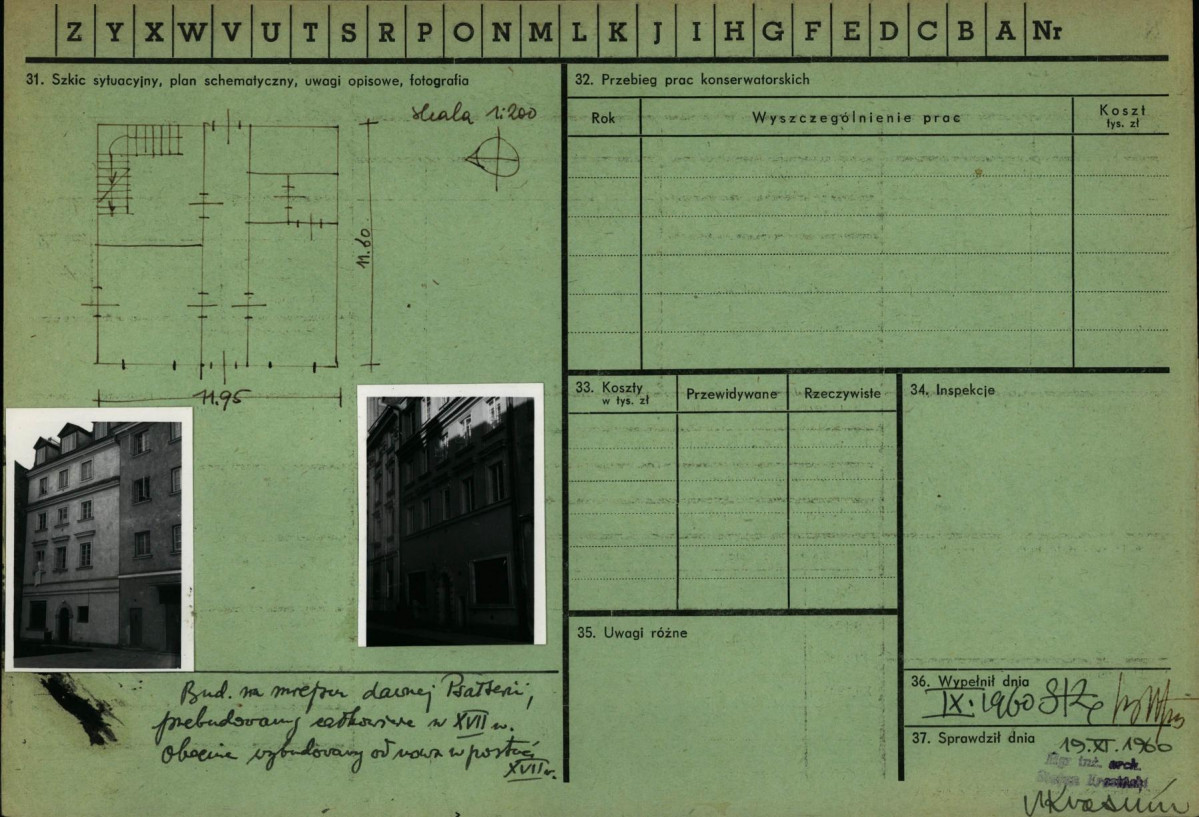 Z Y X W V U T S R P O N M L K J I H G F E D C B A Nr
31. Szkic sytuacyjny, plan schematyczny, uwagi opisowe, fotografia
skala 1:200
11.60
11.95
Bud. na miejscu dawnej Psałterii,
przebudowany całkowicie w XVII w.
Obecnie wybudowany od nowa w postaci
XVII w.
32. Przebieg prac konserwatorskich
Rok Wyszczególnienie prac Koszt
tys. zł
33. Koszty
w tys. zł
Przewidywane Rzeczywiste
34. Inspekcje
35. Uwagi różne
36. Wypełnił dnia
IX. 1960
37. Sprawdził dnia
19.XI.1960
Mgr inż. arch.